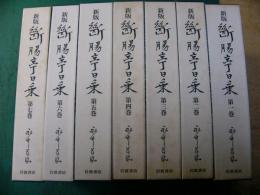 新版
斷腸亭日乗
第七巻
永井荷風
岩波書店
新版
斷腸亭日乗
第六巻
永井荷風
岩波書店
新版
斷腸亭日乗
第五巻
永井荷風
岩波書店
新版
斷腸亭日乗
第四巻
永井荷風
岩波書店
新版
斷腸亭日乗
第三巻
永井荷風
岩波書店
新版
斷腸亭日乗
第二巻
永井荷風
岩波書店
新版
斷腸亭日乗
第一巻
永井荷風
岩波書店